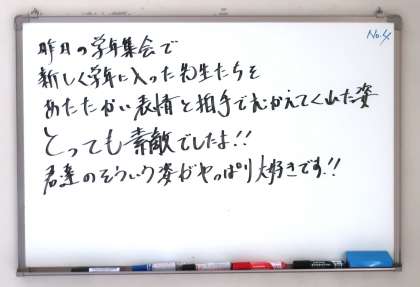 No.4
昨日の学年集会で
新しく学年に入った先生たちを
あたたかい表情と拍手でむかえてくれた姿
とっても素敵でしたよ!!
君達のそういう姿がやっぱり大好きです!!